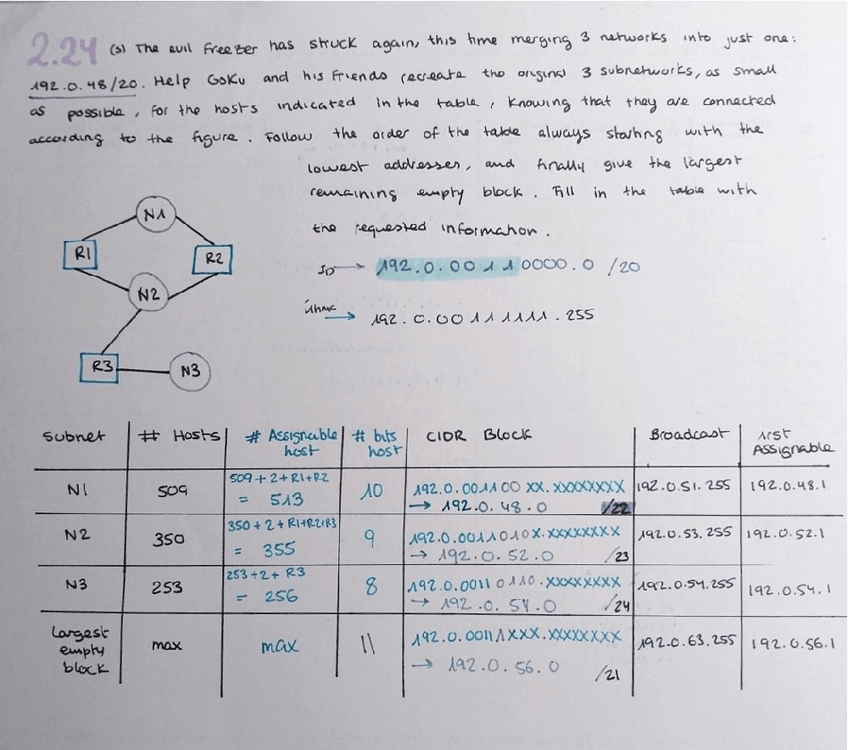 2.24 (s) The evil Freezer has struck again, this time merging 3 networks into just one:
192.0.48/20. Help Goku and his Friends recreate the original 3 subnetworks, as small
as possible, for the hosts indicated in the table, knowing that they are connected
according to the figure. Follow the order of the table always starting with the
lowest addresses, and finally give the largest
remaining empty block. Fill in the table with
the requested information.
N1
R1
R2
N2
R3
N3
ID → 192.0.00110000.0 /20
→ 192.0.00111111.255
Subnet # Hosts # Assignable host # bits host CIDR Block Broadcast 1rst Assignable
N1 509 509+2+R1+R2 = 513 10 192.0.001100XX.XXXXXXXX 192.0.51.255 192.0.48.1
→ 192.0.48.0 /22
N2 350 350+2+R1+R2+R3 = 355 9 192.0.0011010X.XXXXXXXX 192.0.53.255 192.0.52.1
→ 192.0.52.0 /23
N3 253 253+2+R3 = 256 8 192.0.00110110.XXXXXXXX 192.0.54.255 192.0.54.1
→ 192.0.54.0 /24
Largest empty block max max 11 192.0.00111XXX.XXXXXXXX 192.0.63.255 192.0.56.1
→ 192.0.56.0 /21